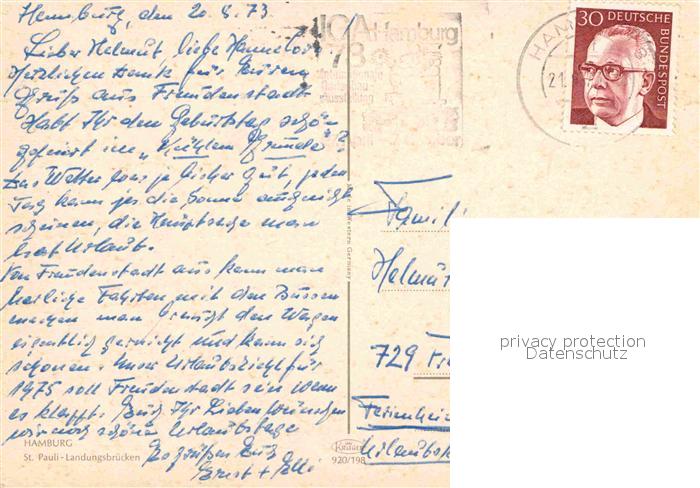 Hamburg, den 20.8.73
Lieber Helmut, liebe Hannelore
Herzlichen Dank für Euren
Gruß aus Freudenstadt
Habt Ihr den Geburtstag schön
gefeiert im „Kühlem Grunde"?
Das Wetter war ja bisher gut, jeden
Tag kann ja die Sonne auch nicht
scheinen, die Hauptsache man
hat Urlaub.
Von Freudenstadt aus kann man
herrliche Fahrten mit den Bussen
machen man braucht den Wagen
eigentlich gar nicht und kann sich
schonen. Unser Urlaubsziel für
1975 soll Freudenstadt sein wenn
es klappt. Euch Ihr Lieben wünschen
wir noch schöne Urlaubstage
Es grüßen Euch
Ernst + Elli
HAMBURG
St. Pauli-Landungsbrücken
Krüger
920/198
IGA Hamburg
73
30 DEUTSCHE
BUNDESPOST
HAM
21.
Famil
Helmut
729 Fr
Ferienheim
Urlaubs
privacy protection
Datenschutz